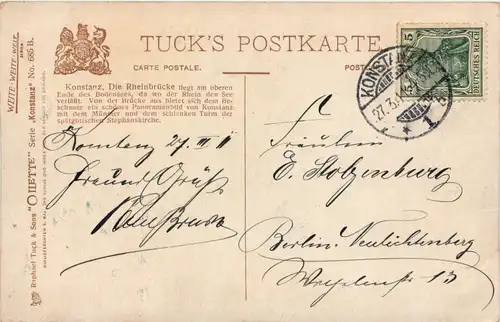 TUCK'S POSTKARTE
CARTE POSTALE.
Konstanz, Die Rheinbrücke liegt am oberen
Ende des Bodensees, da wo der Rhein den See
verläßt. Von der Brücke aus bietet sich dem Be-
schauer ein schönes Panoramenbild von Konstanz
mit dem Münster und dem schlanken Turm der
spätgotischen Stephanskirche.
WEITE-WEITE-WELT
SERIE
Raphael Tuck & Sons "OILETTE" Serie „Konstanz" No. 685 B.
DEUTSCHES REICH
5
KONSTANZ
27.3.11
1
Konstanz 27 III 11
Freundl Grüße
Fräulein
E. Stolzenburg
Berlin-Neulichtenberg
13